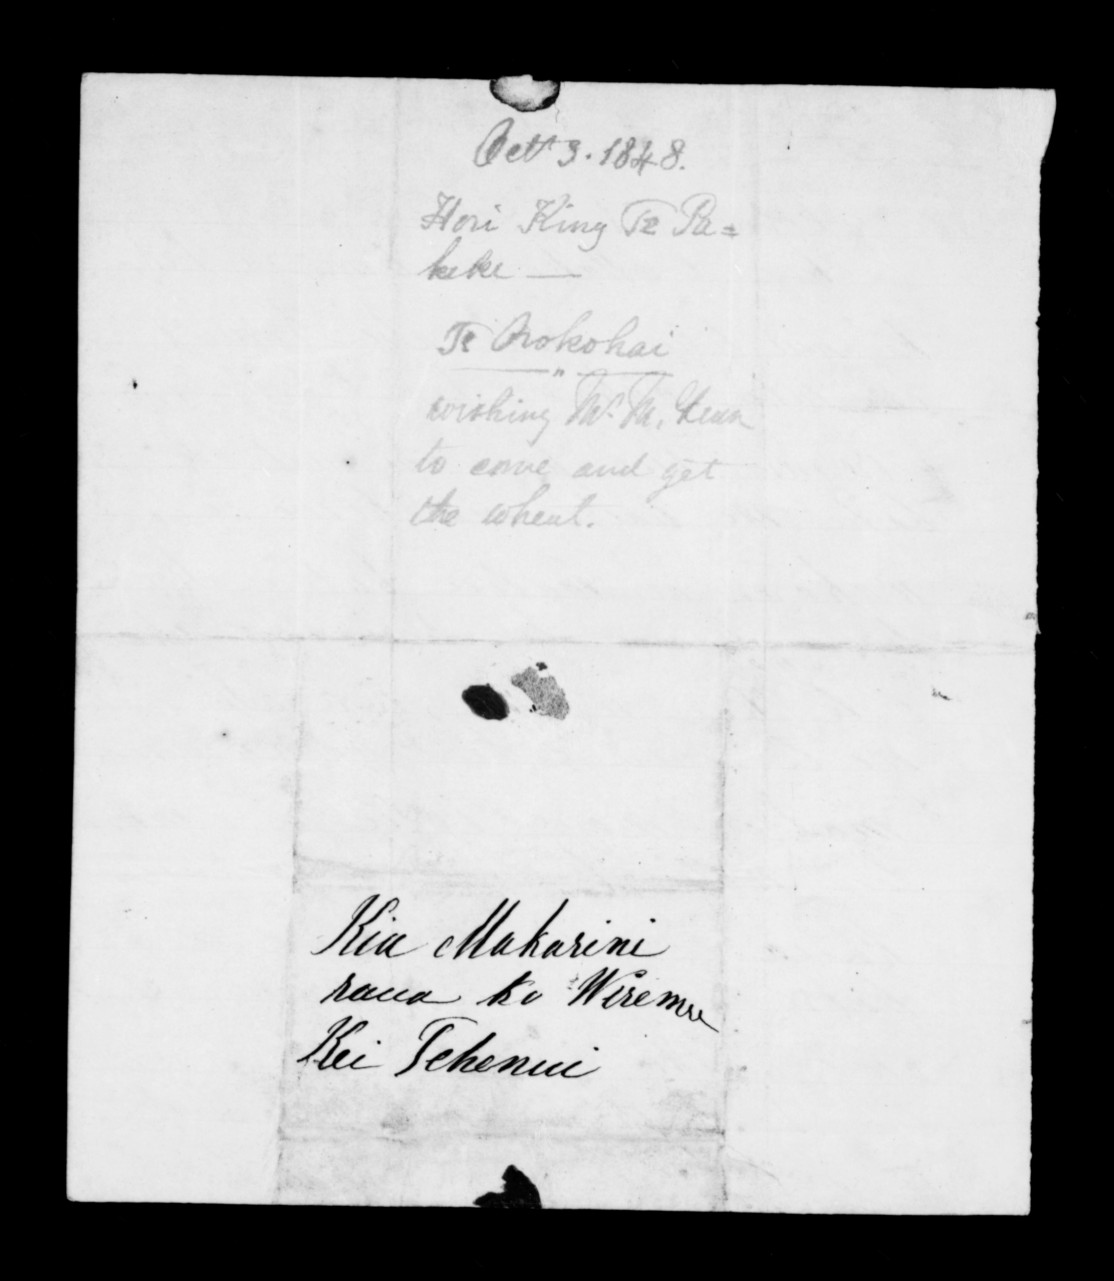 Octr 3. 1848.
Hori King Te Pa=
keke —
Te Orokohai
wishing Mr. McLean
to come and get
the wheat.
Kia Makarini
raua ko Wiremu
Kei Tehenui